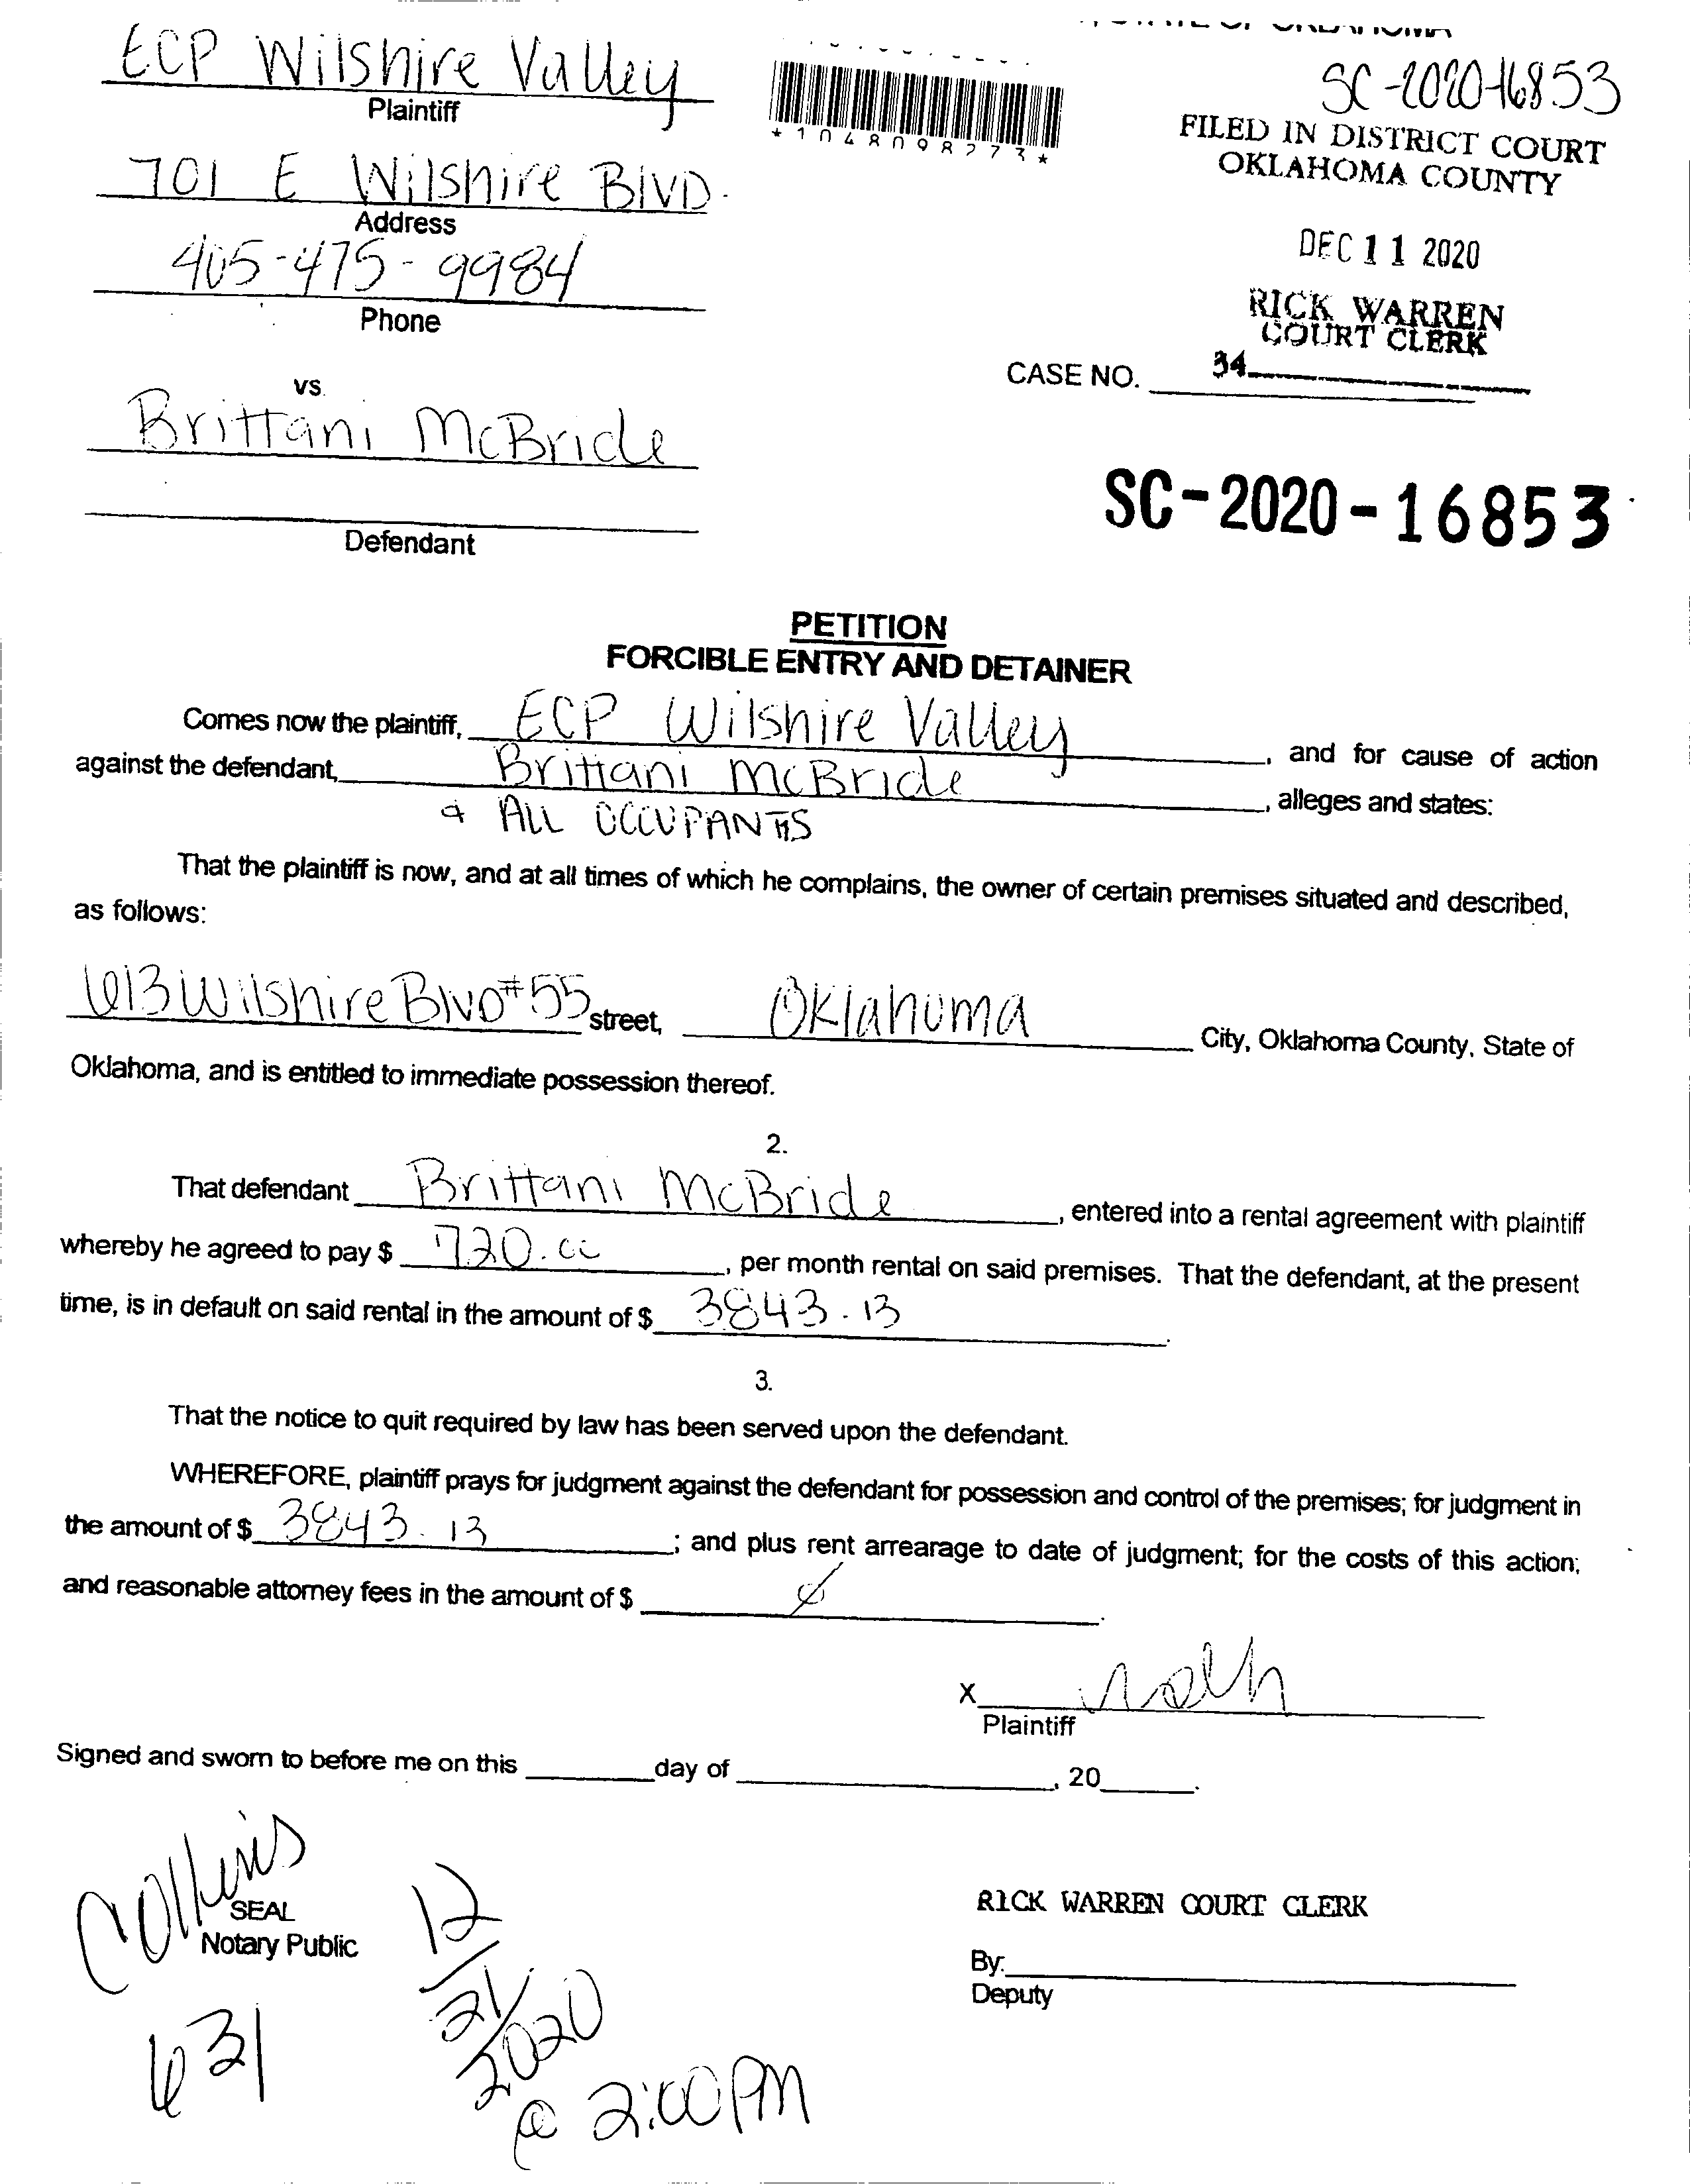 STATE OF OKLAHOMA
ECP Wilshire Valley
Plaintiff
*1048098273*
SC-2020-16853
FILED IN DISTRICT COURT
OKLAHOMA COUNTY
701 E Wilshire BLVD.
Address
DEC 11 2020
405-475-9984
Phone
RICK WARREN
COURT CLERK
CASE NO. 34
vs.
Brittani McBride
Defendant
SC-2020-16853
PETITION
FORCIBLE ENTRY AND DETAINER
Comes now the plaintiff, ECP Wilshire Valley, and for cause of action
against the defendant, Brittani McBride, alleges and states:
& ALL OCCUPANTS
That the plaintiff is now, and at all times of which he complains, the owner of certain premises situated and described,
as follows:
613 Wilshire Blvd #55 street, Oklahoma City, Oklahoma County, State of
Oklahoma, and is entitled to immediate possession thereof.
2.
That defendant Brittani McBride, entered into a rental agreement with plaintiff
whereby he agreed to pay $ 720.00, per month rental on said premises. That the defendant, at the present
time, is in default on said rental in the amount of $ 3843.13.
3.
That the notice to quit required by law has been served upon the defendant.
WHEREFORE, plaintiff prays for judgment against the defendant for possession and control of the premises; for judgment in
the amount of $ 3843.13; and plus rent arrearage to date of judgment; for the costs of this action;
and reasonable attorney fees in the amount of $ Ø.
X
Plaintiff
Signed and sworn to before me on this ____ day of ____, 20____.
Collins
SEAL
Notary Public
631
12/21/2020
@ 2:00 PM
RICK WARREN COURT CLERK
By:
Deputy